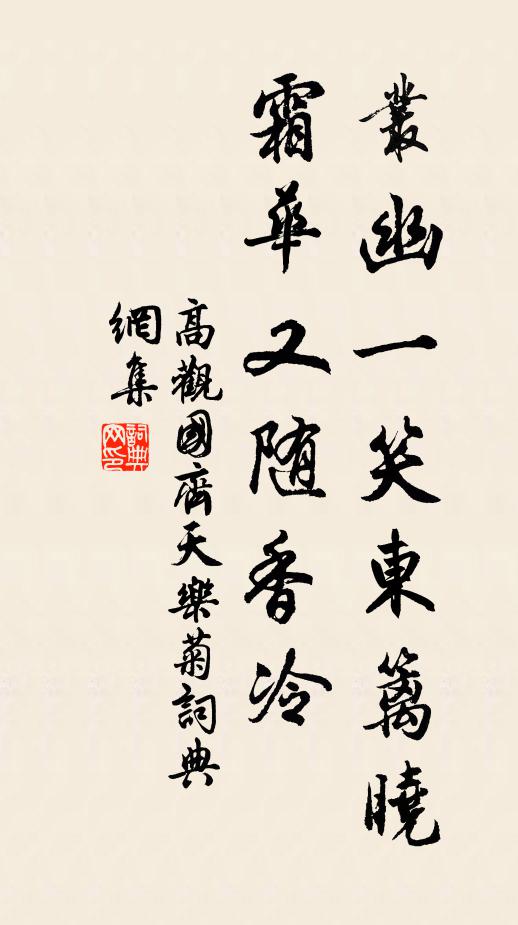 叢幽一笑東籬曉
霜華又随香冷
高觀國齊天樂菊詞典
網集
詞典網印